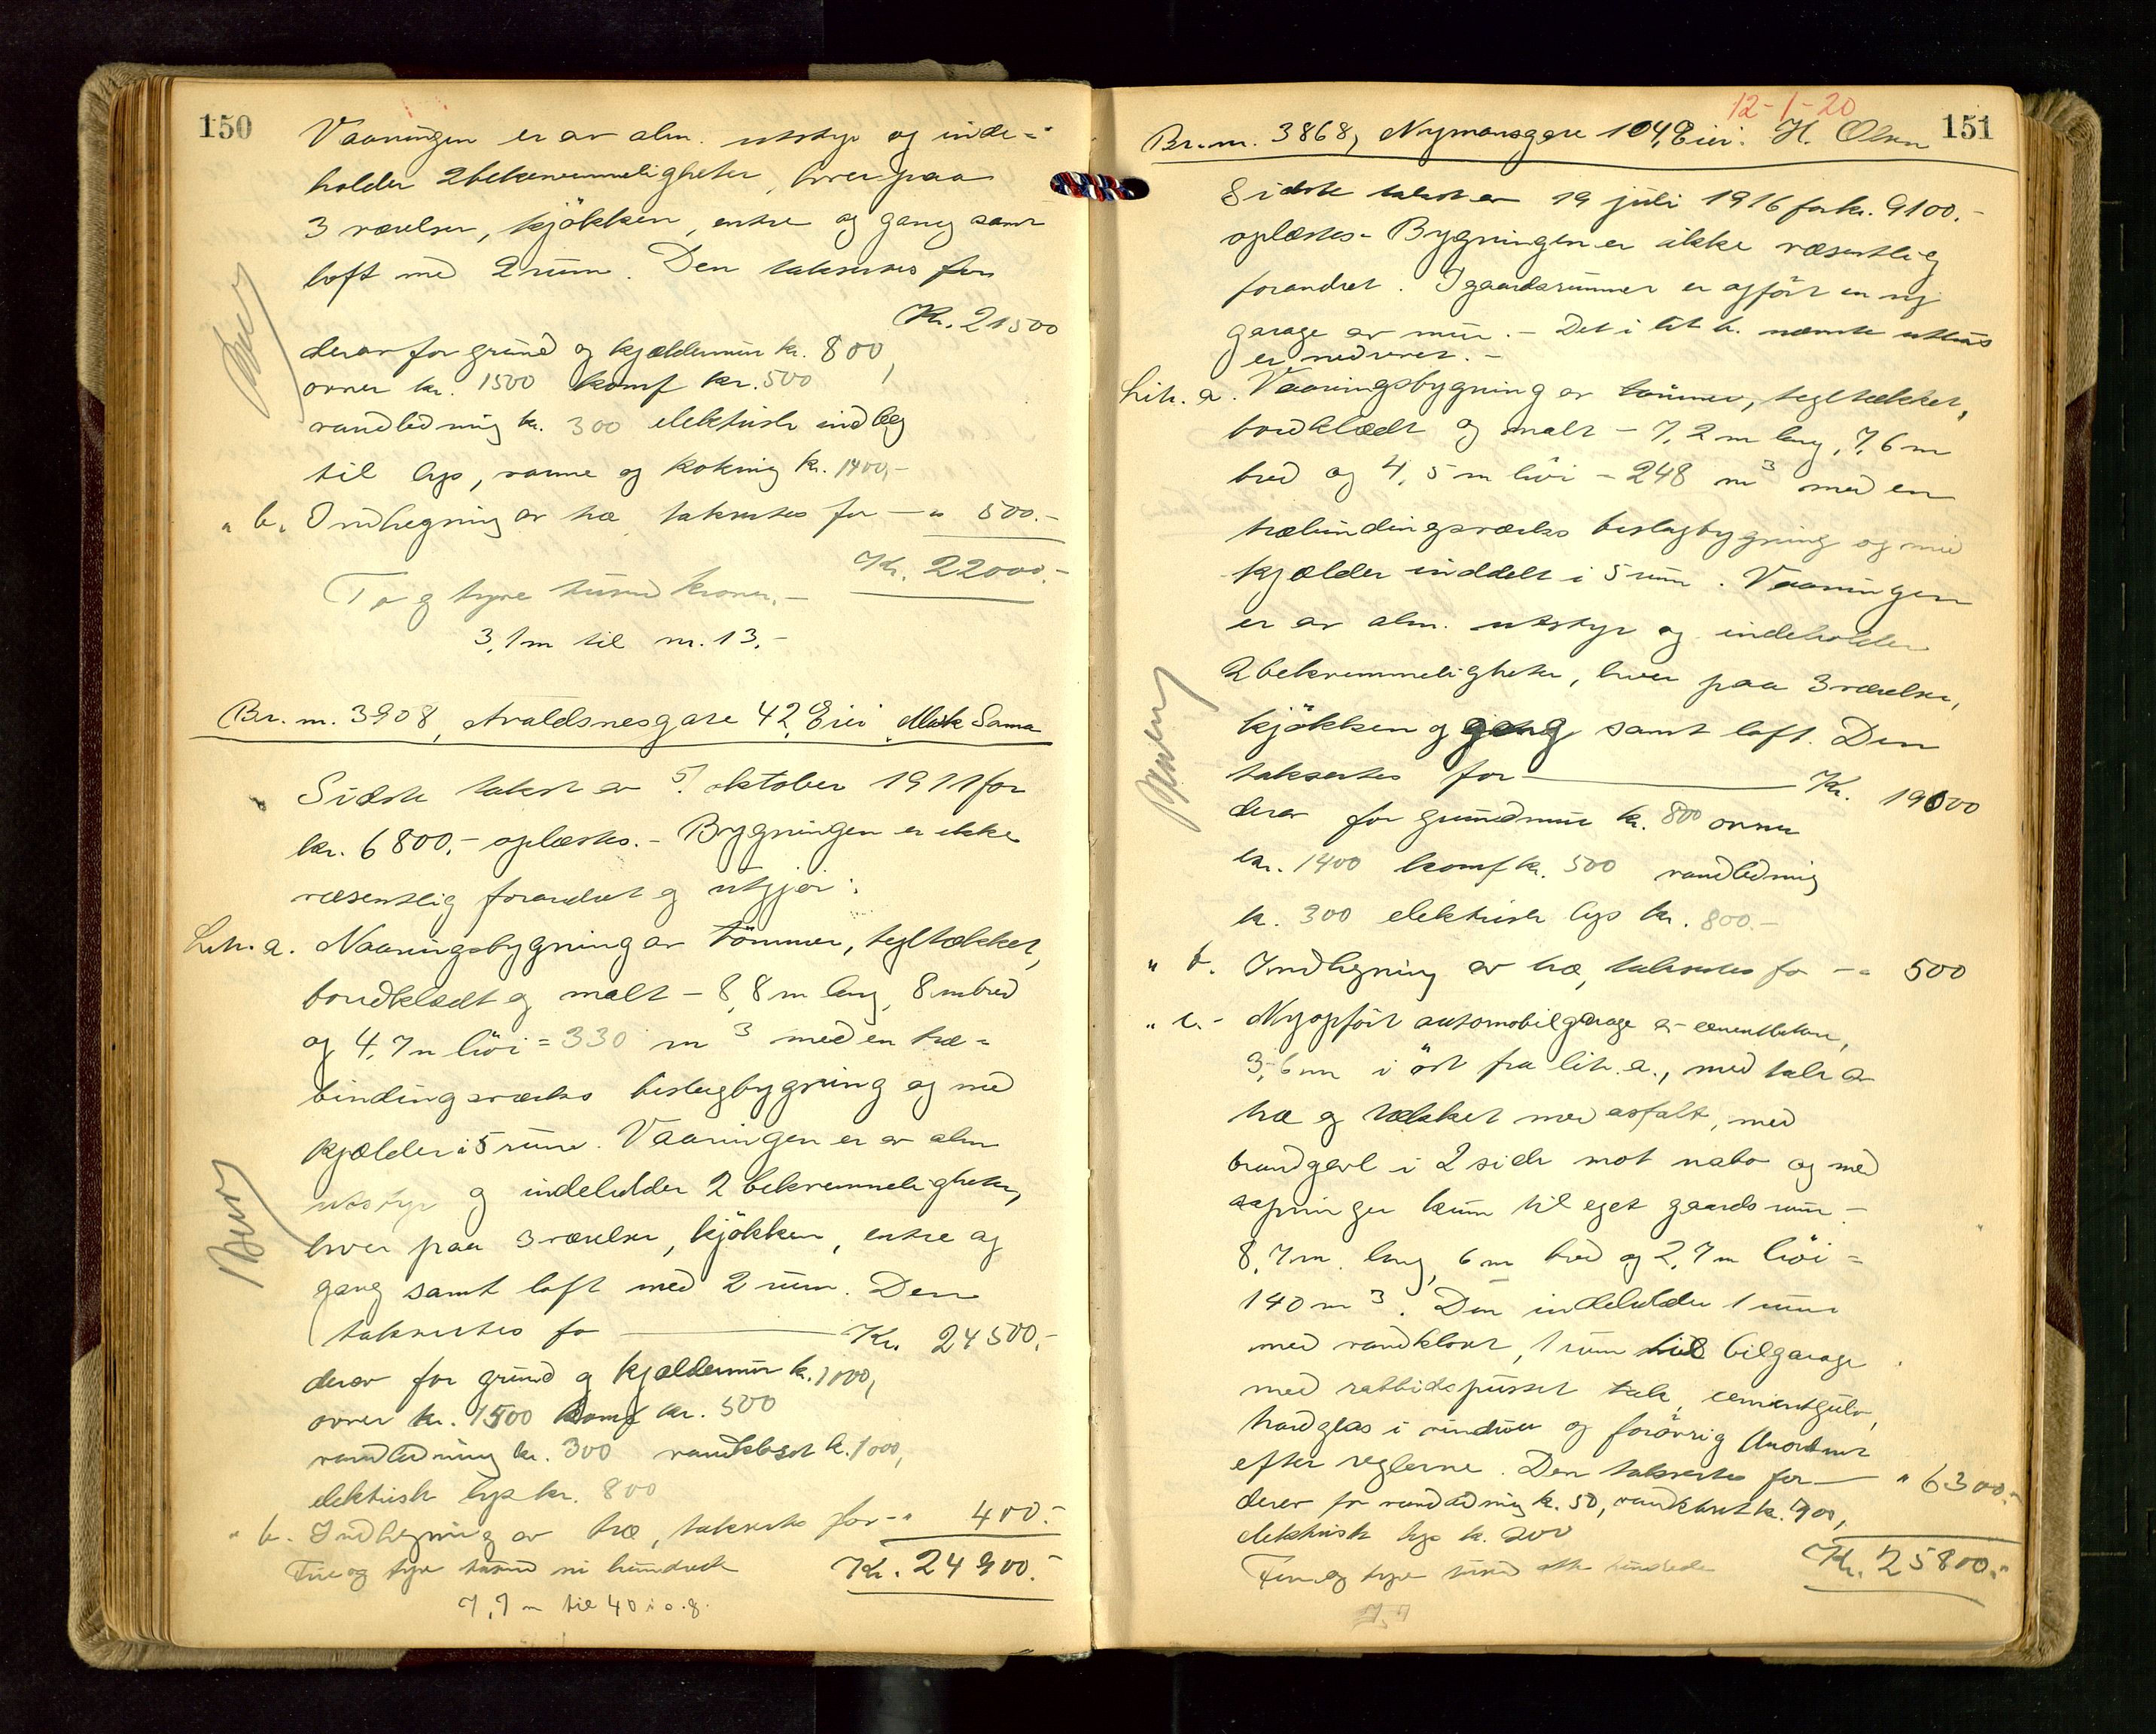 150
Vaaningen er av alm. utstyr og inde-
holder 2 bekvemmeligheter, hver paa
3 værelser, kjökken, entre og gang samt
loft med 2 rum. Den takseres for
Kr. 21500
derav for grund og kjældermur kr. 800,
ovner kr. 1500 komf kr. 500
vandledning kr. 300 elektrisk indlæg
til lys, varme og kokning kr. 1400,-
" b. Indhegning av træ takseres for - " 500.-
Kr. 22000.-
To og tyve tusund kroner.-
3,1 m til nr. 13.-
Br. nr. 3908, Avaldsnesgate 42, Eier Sama
Sidste takst av 5/ oktober 1911 for
kr. 6800.- oplæstes.- Bygningen er ikke
væsentlig forandret og utgjör:
Lit. a. Vaaningsbygning av tömmer, tegltækket,
bordklædt og malt - 8,8 m lang, 8 m bred
og 4,7 m höi = 330 m3 med en træ-
bindingsværks bislagbygning og med
kjælder i 5 rum. Vaaningen er av alm
utstyr og indeholder 2 bekvemmeligheter,
hver paa 3 værelser, kjökken, entre og
gang samt loft med 2 rum. Den
takseres for Kr. 24500.-
derav for grund og kjældermur kr. 1000,
ovner kr. 1500 komf kr. 500
vandledning kr. 300 vandklosot kr. 1000,
elektrisk lys kr. 800
" b. Indhegning av træ, takseres for - " 400.-
Fire og tyve tusund ni hundrede Kr. 24900.-
7,7 m til 40 i o. g.
12-1-20
151
Br. nr. 3868, Nymansgate 104, Eier: H. Olsen
Sidste takst av 19 juli 1916 for kr. 9100.-
oplæstes- Bygningen er ikke væsentlig
forandret. I gaardsrummet er opfört en ny
garage av mur.- Det i lit b. nævnte uthus
er nedrevet.-
Lit. a. Vaaningsbygning av tömmer, tegltækket,
bordklædt og malt - 7,2 m lang, 7,6 m
bred og 4,5 m höi - 248 m3 med en
træbindingsværks bislagbygning og med
kjælder inddelt i 5 rum. Vaaningen
er av alm. utstyr og indeholder
2 bekvemmeligheter, hver paa 3 værelser,
kjökken og gang samt loft. Den
takseres for Kr. 19000
derav for grundmur kr. 800 ovner
kr. 1400 komf kr. 500 vandledning
kr. 300 elektrisk lys kr. 800.-
" b. Indhegning av træ, takseres for - " 500
" c.- Nyopfört automobilgarage av cementbeton,
3,6 m i öst fra lit. a., med tak av
træ og tækket med asfalt, med
brandgavl i 2 sider mot nabo og med
aapninger kun til eget gaardsrum -
8,7 m. lang, 6 m bred og 2,7 m höi =
140 m3. Den indeholder 1 rum
med vandklosot, 1 rum til bilgarage
med rabbidspusset tak, cementgulv,
traadglas i vinduer og forövrig anordnet
efter reglerne. Den takseres for - " 6300.-
derav for vandledning kr. 50, vandklosot kr. 900,
elektrisk lys kr. 200
Kr. 25800.-
Fem og tyve tusund otte hundrede
7,7